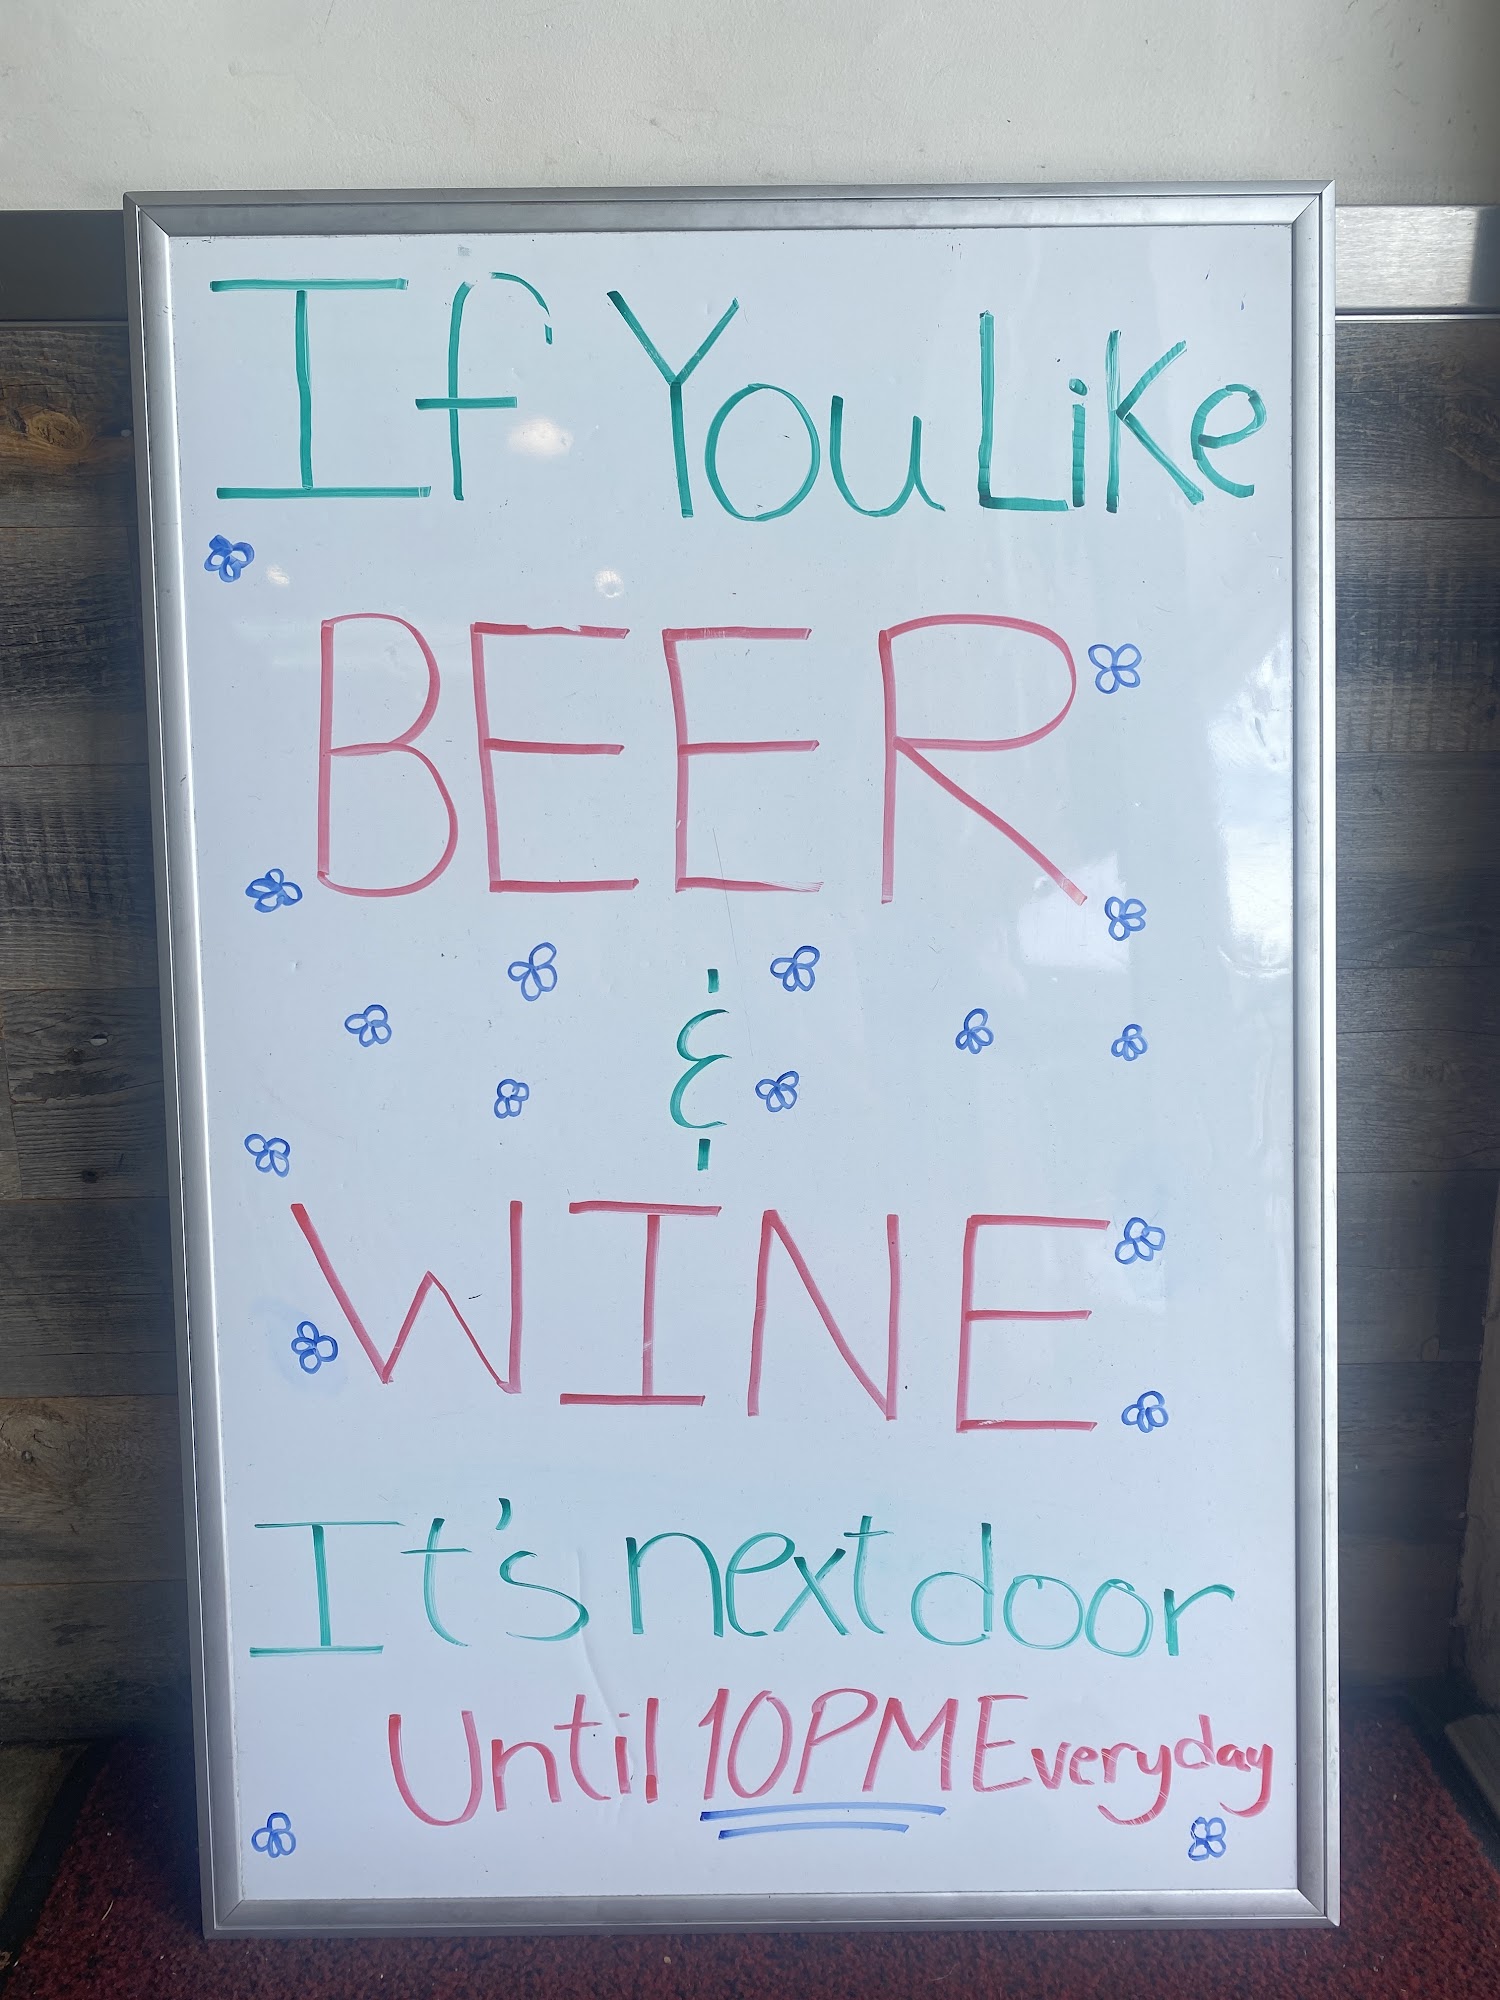 If You Like
BEER
&
WINE
It's next door
Until 10PM Everyday